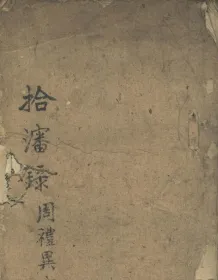 拾瀋錄周禮異